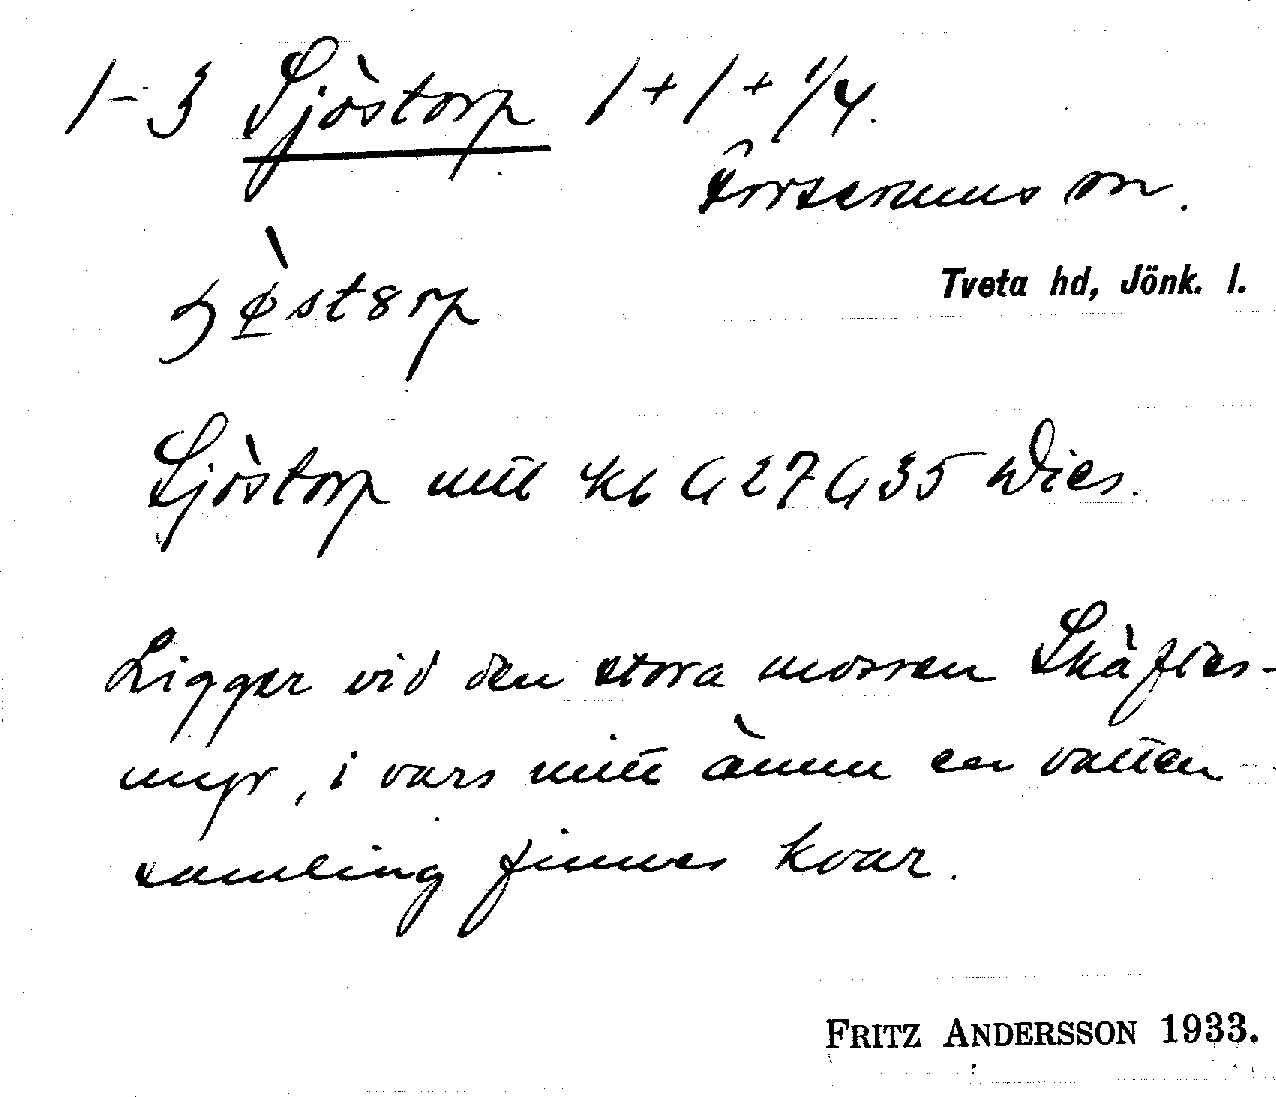 1-3 Sjöstorp 1+1+1/4.
Forserums sn.
Tveta hd, Jönk. l.
Sjöstorp utt kb G 27 G 35 Wies.
Ligger vid den stora mossen Skäftes-
myr, i vars mitt ännu en vatten
samling finnes kvar.
FRITZ ANDERSSON 1933.